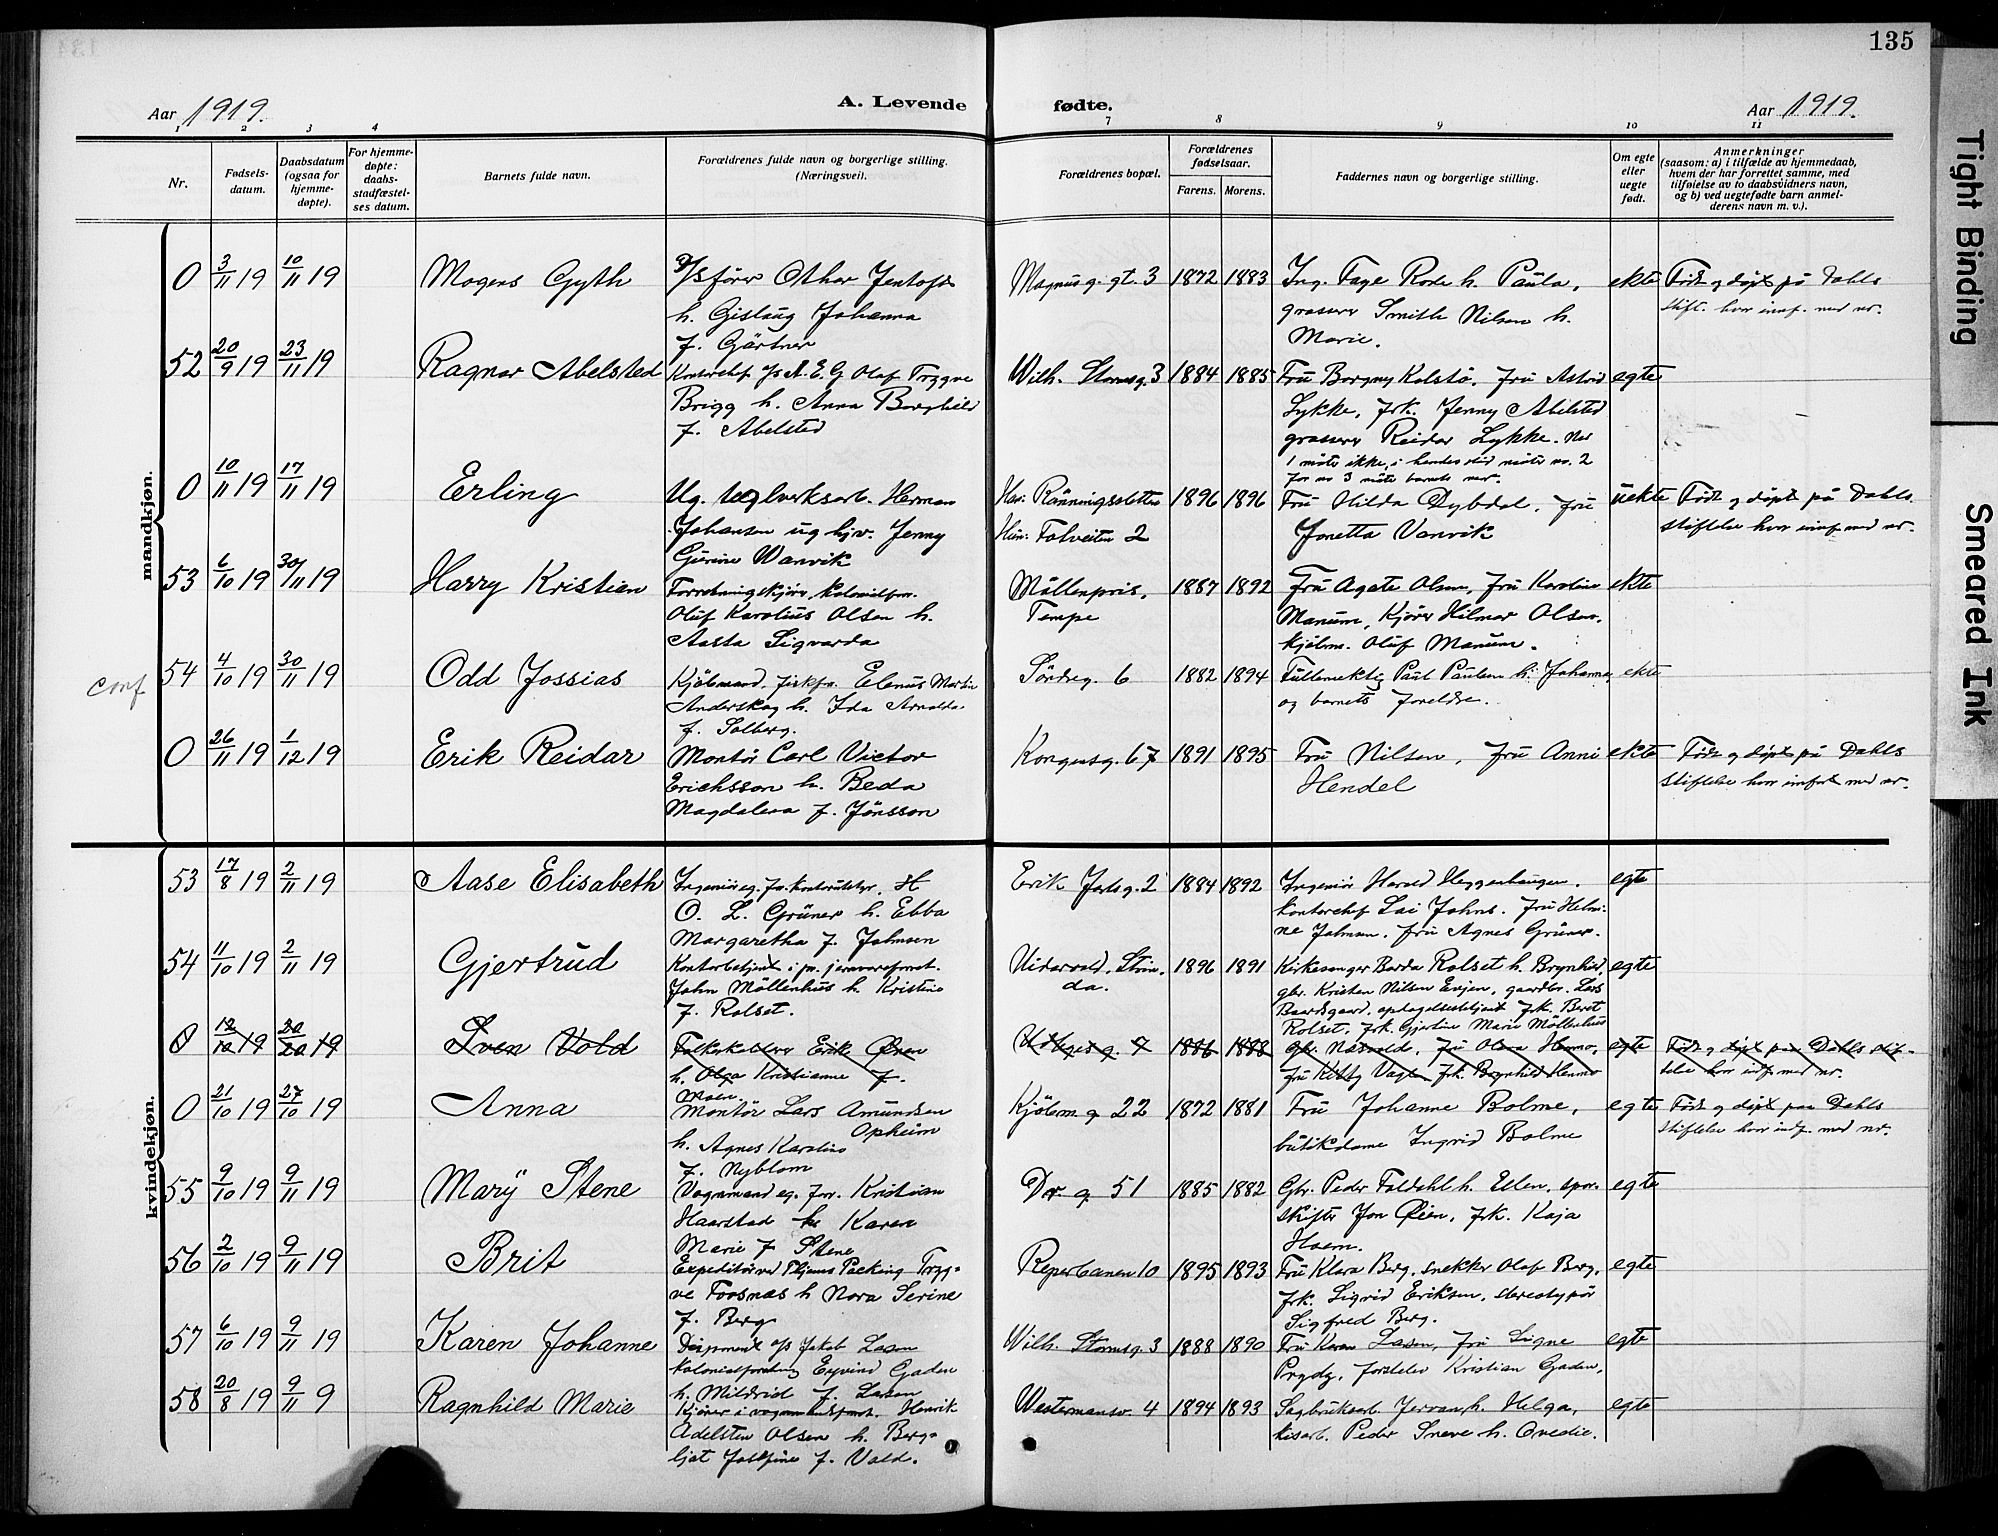 135
Aar 1919.
A. Levende fødte.
Aar 1919.
1 2 3 4 7 8 9 10 11
Nr.
Fødsels-
datum.
Daabsdatum
(ogsaa for
hjemme-
døpte).
For hjemme-
døpte:
daabs-
stadfæstel-
ses datum.
Barnets fulde navn.
Forældrenes fulde navn og borgerlige stilling.
(Næringsvei).
Forældrenes bopæl.
Forældrenes
fødselsaar.
Farens. Morens.
Faddernes navn og borgerlige stilling.
Om egte
eller
uegte
født.
Anmerkninger
(saasom: a) i tilfælde av hjemmedaab,
hvem der har forrettet samme, med
tilføielse av to daabsvidners navn,
og b) ved uegtefødte barn anmel-
derens navn m. v.).
mandkjøn.
0 3/11 19 10/11 19 Mogens Gyth
fører Othar Jentoft
h. Gislaug Johanna
f. Gärtner
Magnus g. gt. 3 1872 1883
Ing. Faye Rode h. Paula,
grosserer Smith Nilsen h.
Marie.
ekte
Født og døpt på Dahls
stift. hvor innf. med nr.
52 20/9 19 23/11 19 Ragnar Abelsted
Kontorchef A.E.G. Olaf Trygve
Brigg h. Anna Borghild
f. Abelsted
Wilh. Stormsg. 3 1884 1885
Fru Borgny Kolstø, fru Astrid
Lykke, frk. Jenny Abelsted
grosserer Reidar Lykke. Nr.
1 møtte ikke, i hendes sted møtte no. 2
for no 3 møtte barnets mor.
egte
0 10/11 19 17/11 19 Erling
Ug. Herman
Johansen ug hjv. Jenny
Gurine Wanvik
Han: Rønningsletten
Hun: Tolveiten 2
1896 1896
Fru Hilda Dybdal, fru
Jonetta Vanvik
uekte
Født og døpt på Dahls
stiftelse hvor innf. med nr.
53 6/10 19 30/11 19 Harry Kristian
Forretningskjører, kolonialfor.
Oluf Karolius Olsen h.
Aasta Sigvarda
Møllenpris,
Tempe
1887 1892
Fru Agate Olsen, fru Karoline
Manum, Kjører Hilmar Olsen,
kjøbm. Oluf Manum.
ekte
conf
54 4/10 19 30/11 19 Odd Jossias
Kjøbmand, fiskfor. Elenus Martin
Anderskog h. Ida Arnolda
f. Solberg.
Søndreg. 6 1882 1894
Fullmektig Paul Paulsen h. Johanna,
og barnets foreldre.
ekte
0 26/11 19 1/12 19 Erik Reidar
Montør Carl Victor
Erichsson h. Beda
Magdalena f. Jönsson
Kongensg. 67 1891 1895
Fru Nilsen, fru Anni
Hendel
ekte
Født og døpt på Dahls
stiftelse hvor innført med nr.
kvindekjøn.
53 17/8 19 2/11 19 Aase Elisabeth
Ingeniør eg. for. kontorutstyr, H
O. L. Grüner h. Ebba
Margaretha f. Johnsen
Erik Jarlsg. 2 1884 1892
Ingeniør Harald Heggenhaugen.
kontorchef Lai Johns. fru Helmi-
ne Johnsen, fru Agnes Grüner.
egte
54 11/10 19 2/11 19 Gjertrud
Kontorbetjent i jernvareforret.
John Møllenhus h. Kristine
f. Rolset.
Strin-
da.
1896 1891
Kirkesanger Rolset h. Brynhild,
gbr. Kristen Nilsen Enjen, gaardbr. Lars
Baardsgaard, frk. Berit
Rolset, frk. Gjertine Marie Møllenhus
egte
0 12/10 19 20/10 19 Sven Vold
Folkeskolelærer Erik Øren
h. Olga Kristianne f.
Moen.
7 1886 1888
fru Olava Henmo,
fru Kitty Vagle, frk. Brynhild Henmo
egte
Født og døpt paa Dahls stif-
telse hvor indf. med nr.
0 21/10 19 27/10 19 Anna
Montør Lars Amundsen
Opheim
h. Agnes Karoline
f. Nyblom
Kjøbm. g. 22 1872 1881
Fru Johanne Bolme,
butikdame Ingrid Bolme
egte
Født og døpt paa Dahls
stiftelse hvor indf. med nr.
55 9/10 19 9/11 19 Marÿ Stene
Vognmand eg. for. Kristian
Haarstad h. Karen
Marie f. Stene
Dr. g. 51 1885 1882
Gbr. Peder Foldahl h. Ellen, spor-
skifter Jon Øien, frk. Kaja
Hoem.
egte
56 2/10 19 9/11 19 Brit
Expeditør ved Thjems Packing Tryg-
ve Foosnæs h Nora Serine
f. Berg
Reperbanen 10 1895 1893
Fru Klara Berg, snekker Olaf Berg,
frk. Sigrid Eriksen, stereotypør
Sigfred Berg.
egte
57 6/10 19 9/11 19 Karen Johanne
Disponent Jakob Lasen
kolonialforretning Eyvind Gaden
h. Mildrid f. Lasen
Wilh. Stormsg. 3 1888 1890
Fru Karen Lasen, fru Signe
Prydz, Kristian Gaden,
egte
58 20/8 19 9/11 9 Ragnhild Marie
Kjører i Henrik
Adelsten Olsen h. Berg-
ljot Josefine f. Vold.
Westermannsv. 4 1894 1893
Sagbruksarb. h. Helga,
Peder Sneve h. Ovedie.
egte
Tight Binding
Smeared Ink